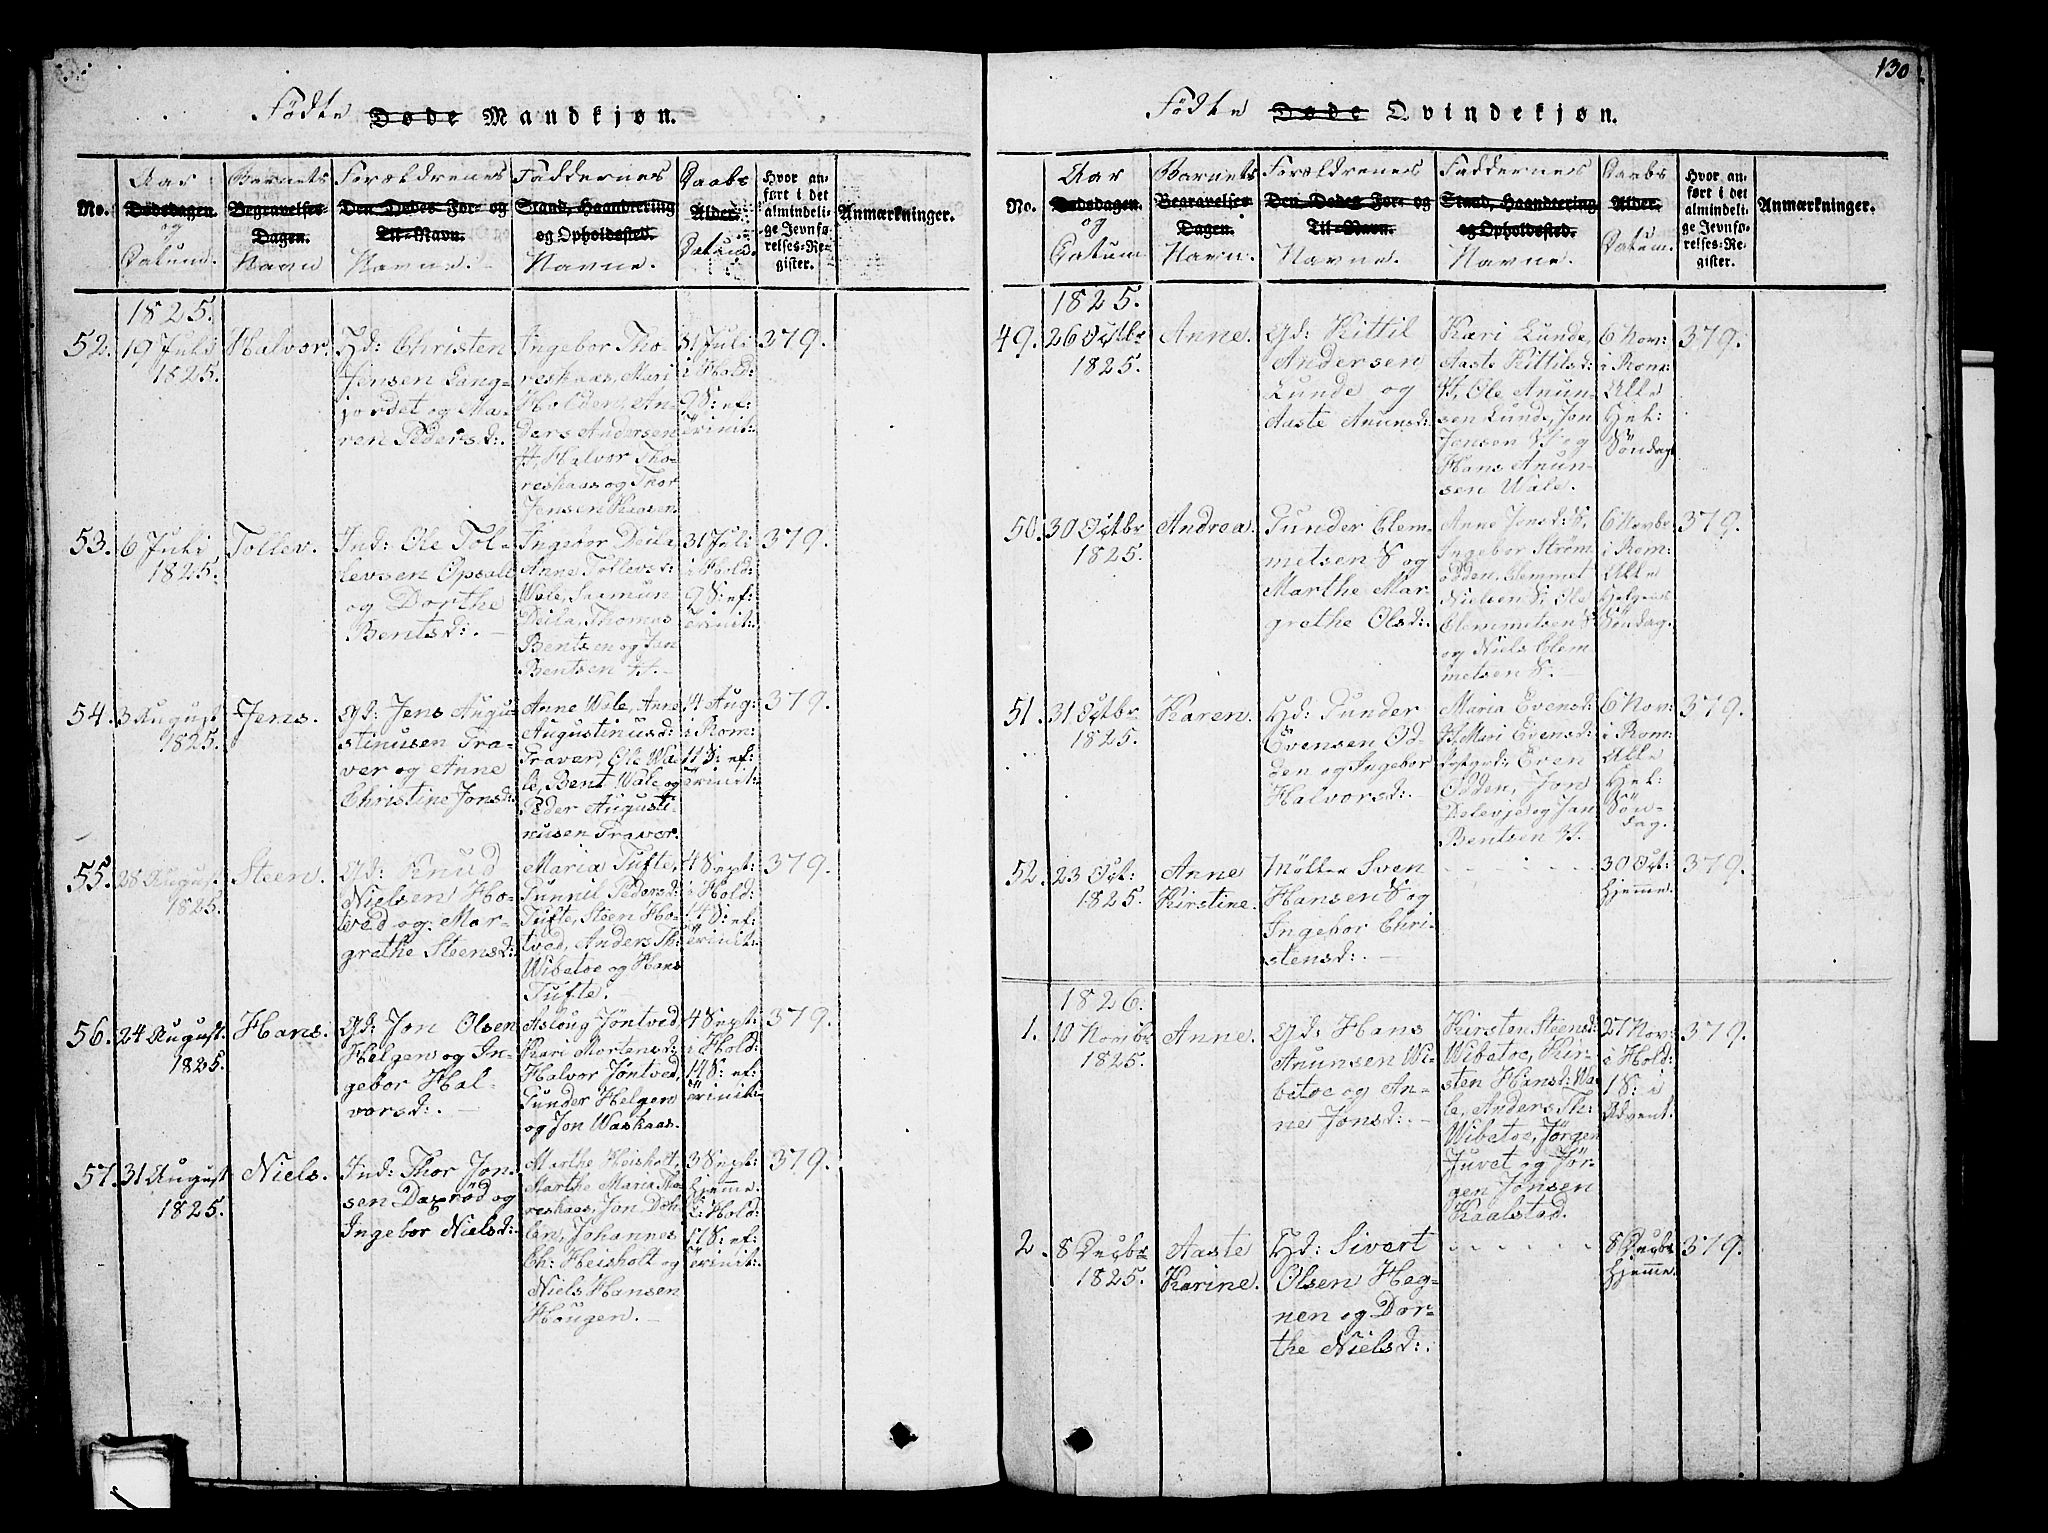 130
Fødte Døde Mandkjøn.
No.
Aar
Dødsdagen.
og
Datum.
Barnets
Begravelses-
Dagen.
Navn
Forældrenes
Den Dødes For- og
Til-Navn.
Navne.
Faddernes
Stand, Haandtering
og Opholdsted.
Navne.
Daabs
Alder.
Datum.
Hvor an-
ført i det
almindeli-
ge Jevnfø-
relses-Re-
gister.
Anmærkninger.
1825.
52.
19 Juli
1825.
Halvor.
Hd: Christen
Jensen Lang-
jordet og Ma-
ren Pedersd:.
Ingebor Tho-
reskaas, Mari
Holden, An-
ders Andersen
H, Halvor Tho-
reskaas og Thor
Jensen
31 Juli
i Hold:
9 S: ef:
Trinit:
379.
53.
6 Juli
1825.
Tollev.
Ind: Ole Tol-
levsen Opsal
og Dorthe
Bentsd:.
Ingebor Deila,
Anne Tollevsd:
Wale, Saamun
Deila, Thomas
Bentsen og Jan
Bentsen
31 Juli
i Hold:
9 S: ef:
Trinit:
379.
54.
3 August
1825.
Jens.
Gd: Jens Augu-
stinusen Tra-
ver og Anne
Christine Jonsd:
Anne Wale, Anne
Augustinusd:
Traver, Ole Wa-
le, Bent Wale og
Peder Augusti-
nusen Traver.
14 Aug:
i Rom:
11 S: ef:
Trinit:
379.
55.
28 August
1825.
Steen.
Gd: Knud
Nielsen Ho-
tved og Mar-
grethe Steensd:
Maria Tufte,
Gunnil Pedersd:
Tufte, Steen Ho-
tved, Anders Th:
Wibetoe og Hans
Tufte.
4 Sept:
i Hold:
14 S: ef:
Trinit:
379.
56.
24 August
1825.
Hans.
Gd: Jon Olsen
Helgen og In-
gebor Hal-
vorsd:.
Aslaug Jøntved
Kari Mortensd:
Halvor Jøntved,
Gunder Helgen
og Jon Waskaas.
4 Sept:
i Hold:
14 S: ef:
Trinit:
379.
57.
31 August
1825.
Niels.
Ind: Thor Jon-
sen Daxrød og
Ingebor Nielsd:.
Marthe Heisholt,
Marthe Maria Tho-
reskaas, Jon Døh-
len, Johannes
Ch: Heisholt og
Niels Hansen
Haugen.
3 Sept:
hjemme.
i Hold:
17 S: ef:
Trinit:
379.
Fødte Døde Qvindekjøn.
No.
Aar
Dødsdagen.
og
Datum
Barnets
Begravelses-
Dagen.
Navn.
Forældrenes
Den Dødes For- og
Til-Navn.
Navne.
Faddernes
Stand, Haandtering
og Opholdsted.
Navne.
Daabs
Alder.
Datum.
Hvor an-
ført i det
almindeli-
ge Jevnfø-
relses-Re-
gister.
Anmærkninger.
1825.
49.
26 Octbr
1825.
Anne.
Gd: Kittil
Andersen
Lunde og
Aaste Anunsd:
Kari Lunde,
Aaste Kittilsd:
H, Ole Anun-
sen Lunde, Jon
Jensen H og
Hans Anun-
sen Wale.
6 Nov:
i Rom:
Alle
Hel:
Søndag
379.
50.
30 Octbr
1825.
Andrea.
Gunder Clem-
metsen S og
Marthe Mar-
grethe Olsd:.
Anne Jensd: S,
Ingebor Strøm-
odden, Clemmet
Nielsen S, Ole
Clemmetsen S
og Niels Clem-
metsen S.
6 Novbr
i Rom:
Alle
Helgens
Søndag.
379.
51.
31 Octbr
1825.
Karen.
Hd: Gunder
Evensen Od-
den og Ingebor
Halvorsd:.
Maria Evensd:
H, Mari Evensd:
Even
Odden, Jon
og Jan
Bentsen
6 Nov:
i Rom:
Alle
Hel:
Søn-
dag.
379.
52.
23 Oct:
1825.
Anne
Kirstine.
Møller Sven
Hansen S og
Ingebor Chri-
stensd:.
30 Oct:
hjemme.
379.
1826.
1.
10 Novbr
1825.
Anne.
Gd: Hans
Anunsen Wi-
betoe og An-
ne Jonsd:.
Kirsten Steensd:
Wibetoe, Kir-
sten Hansd: Wa-
le, Anders Th:
Wibetoe, Jørgen
Juvet og Jør-
gen Jonsen
Kaalstad.
27 Nov:
i Hold:
1 S: i
Advent.
379.
2.
8 Decbr
1825.
Aaste
Karine.
Hd: Sivert
Olsen Heg-
nen og Dor-
the Nielsd:.
8 Decbr
hjemme.
379.